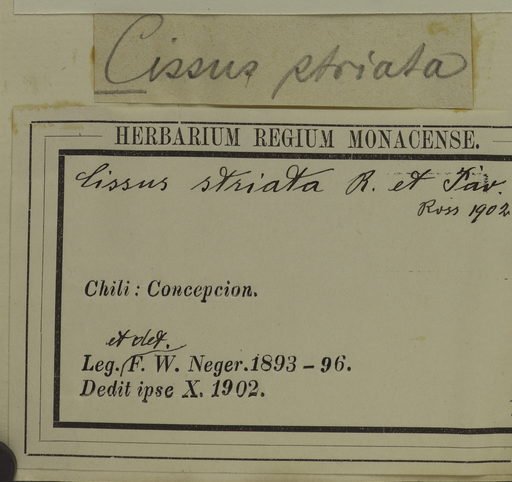 Cissus striata
HERBARIUM REGIUM MONACENSE.
Cissus striata R. et Pav.
Ross 1902
Chili: Concepcion.
et det.
Leg. F. W. Neger. 1893-96.
Dedit ipse X. 1902.